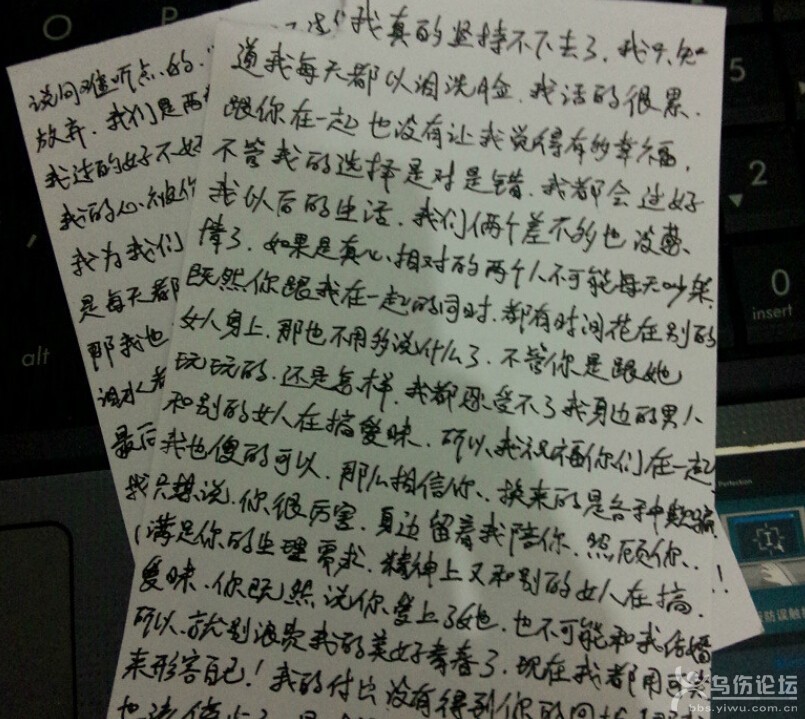 我真的坚持不下去了.我不知
道我每天都以泪洗脸.我活的很累.
跟你在一起也没有让我觉得有多幸福,
不管我的选择是对是错.我都会过好
我以后的生活.我们俩个差不多也没缘、
情了.如果是真心相对的两个人不可能每天吵架
既然你跟我在一起的同时.都有时间花在别的
女人身上.那也不用多说什么了.不管你是跟她
玩玩的.还是怎样.我都受不了我身边的男人
和别的女人在搞暧昧.所以.我祝福你们在一起
我也傻的可以.那么相信你.换来的是各种欺骗
我只想说.你很厉害.身边留着我陪你.照顾你.
(满足你的生理需求.精神上又和别的女人在搞
暧昧.你既然说你爱上了她.也不可能和我结婚
所以.就别浪费我的美好青春了.现在我都用
来形容自己!我的付出没有得到你的回报
说句难听点的.
放弃.我们是两
我过的好不好
我的心.被你
我为我们
是每天都
那我也
泪水
最后
O
P
5
2
0
insert
alt
Perfection
防误触
乌伤论坛
bbs.yiwu.com.cn